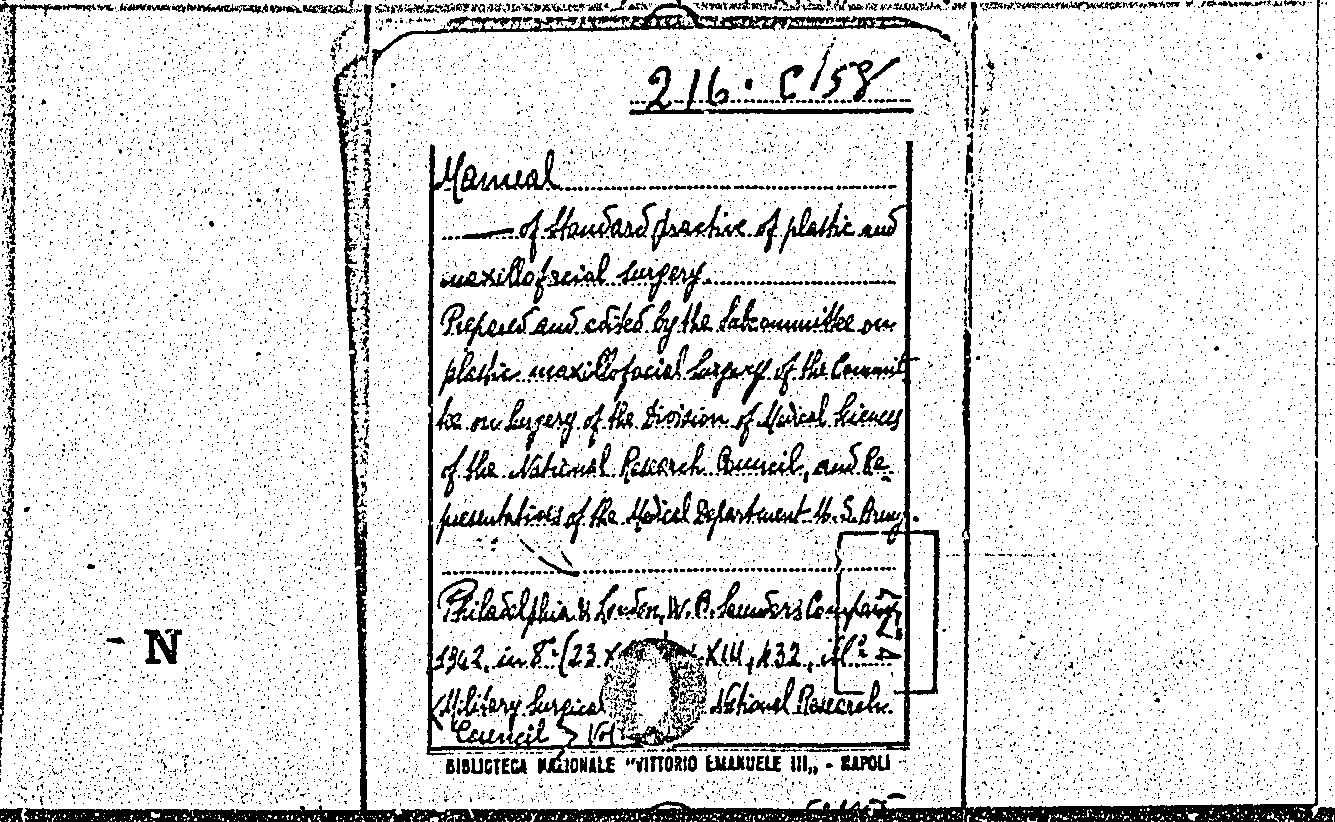 216. C/58
Manual
— of standard practice of plastic and
maxillofacial surgery.
Prepared and edited by the Subcommittee on
plastic maxillofacial surgery of the Commit
tee on Surgery of the Division of Medical Sciences
of the National Research Council, and Re
presentatives of the Medical Department U. S. Army.
Philadelphia & London, W. B. Saunders Company,
1942, in 8° (23 x XIII, 432, ill
- N
< Military Surgical National Research
Council > Vol
BIBLIOTECA NAZIONALE "VITTORIO EMANUELE III„ - NAPOLI